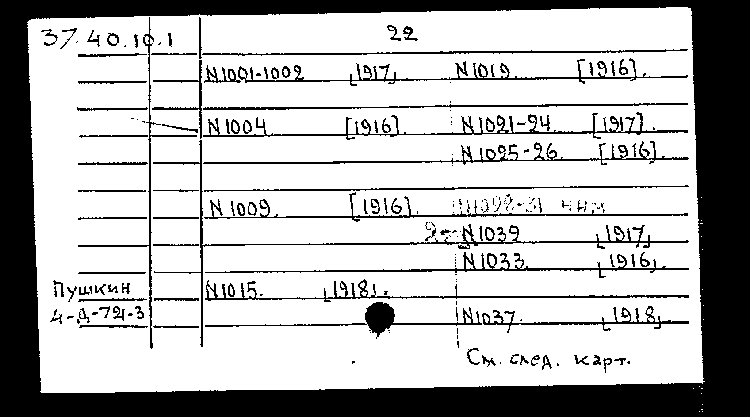 37.40.10.1
22
N1001-1002 [1917]
N1004 [1916]
N1009. [1916].
Пушкин
4-Д-721-3
N1015. [1918].
N1019. [1916].
N1021-24. [1917].
N1025-26. [1916].
N1039 [1917]
N1033. [1916].
N1037. [1918]
См. след. карт.